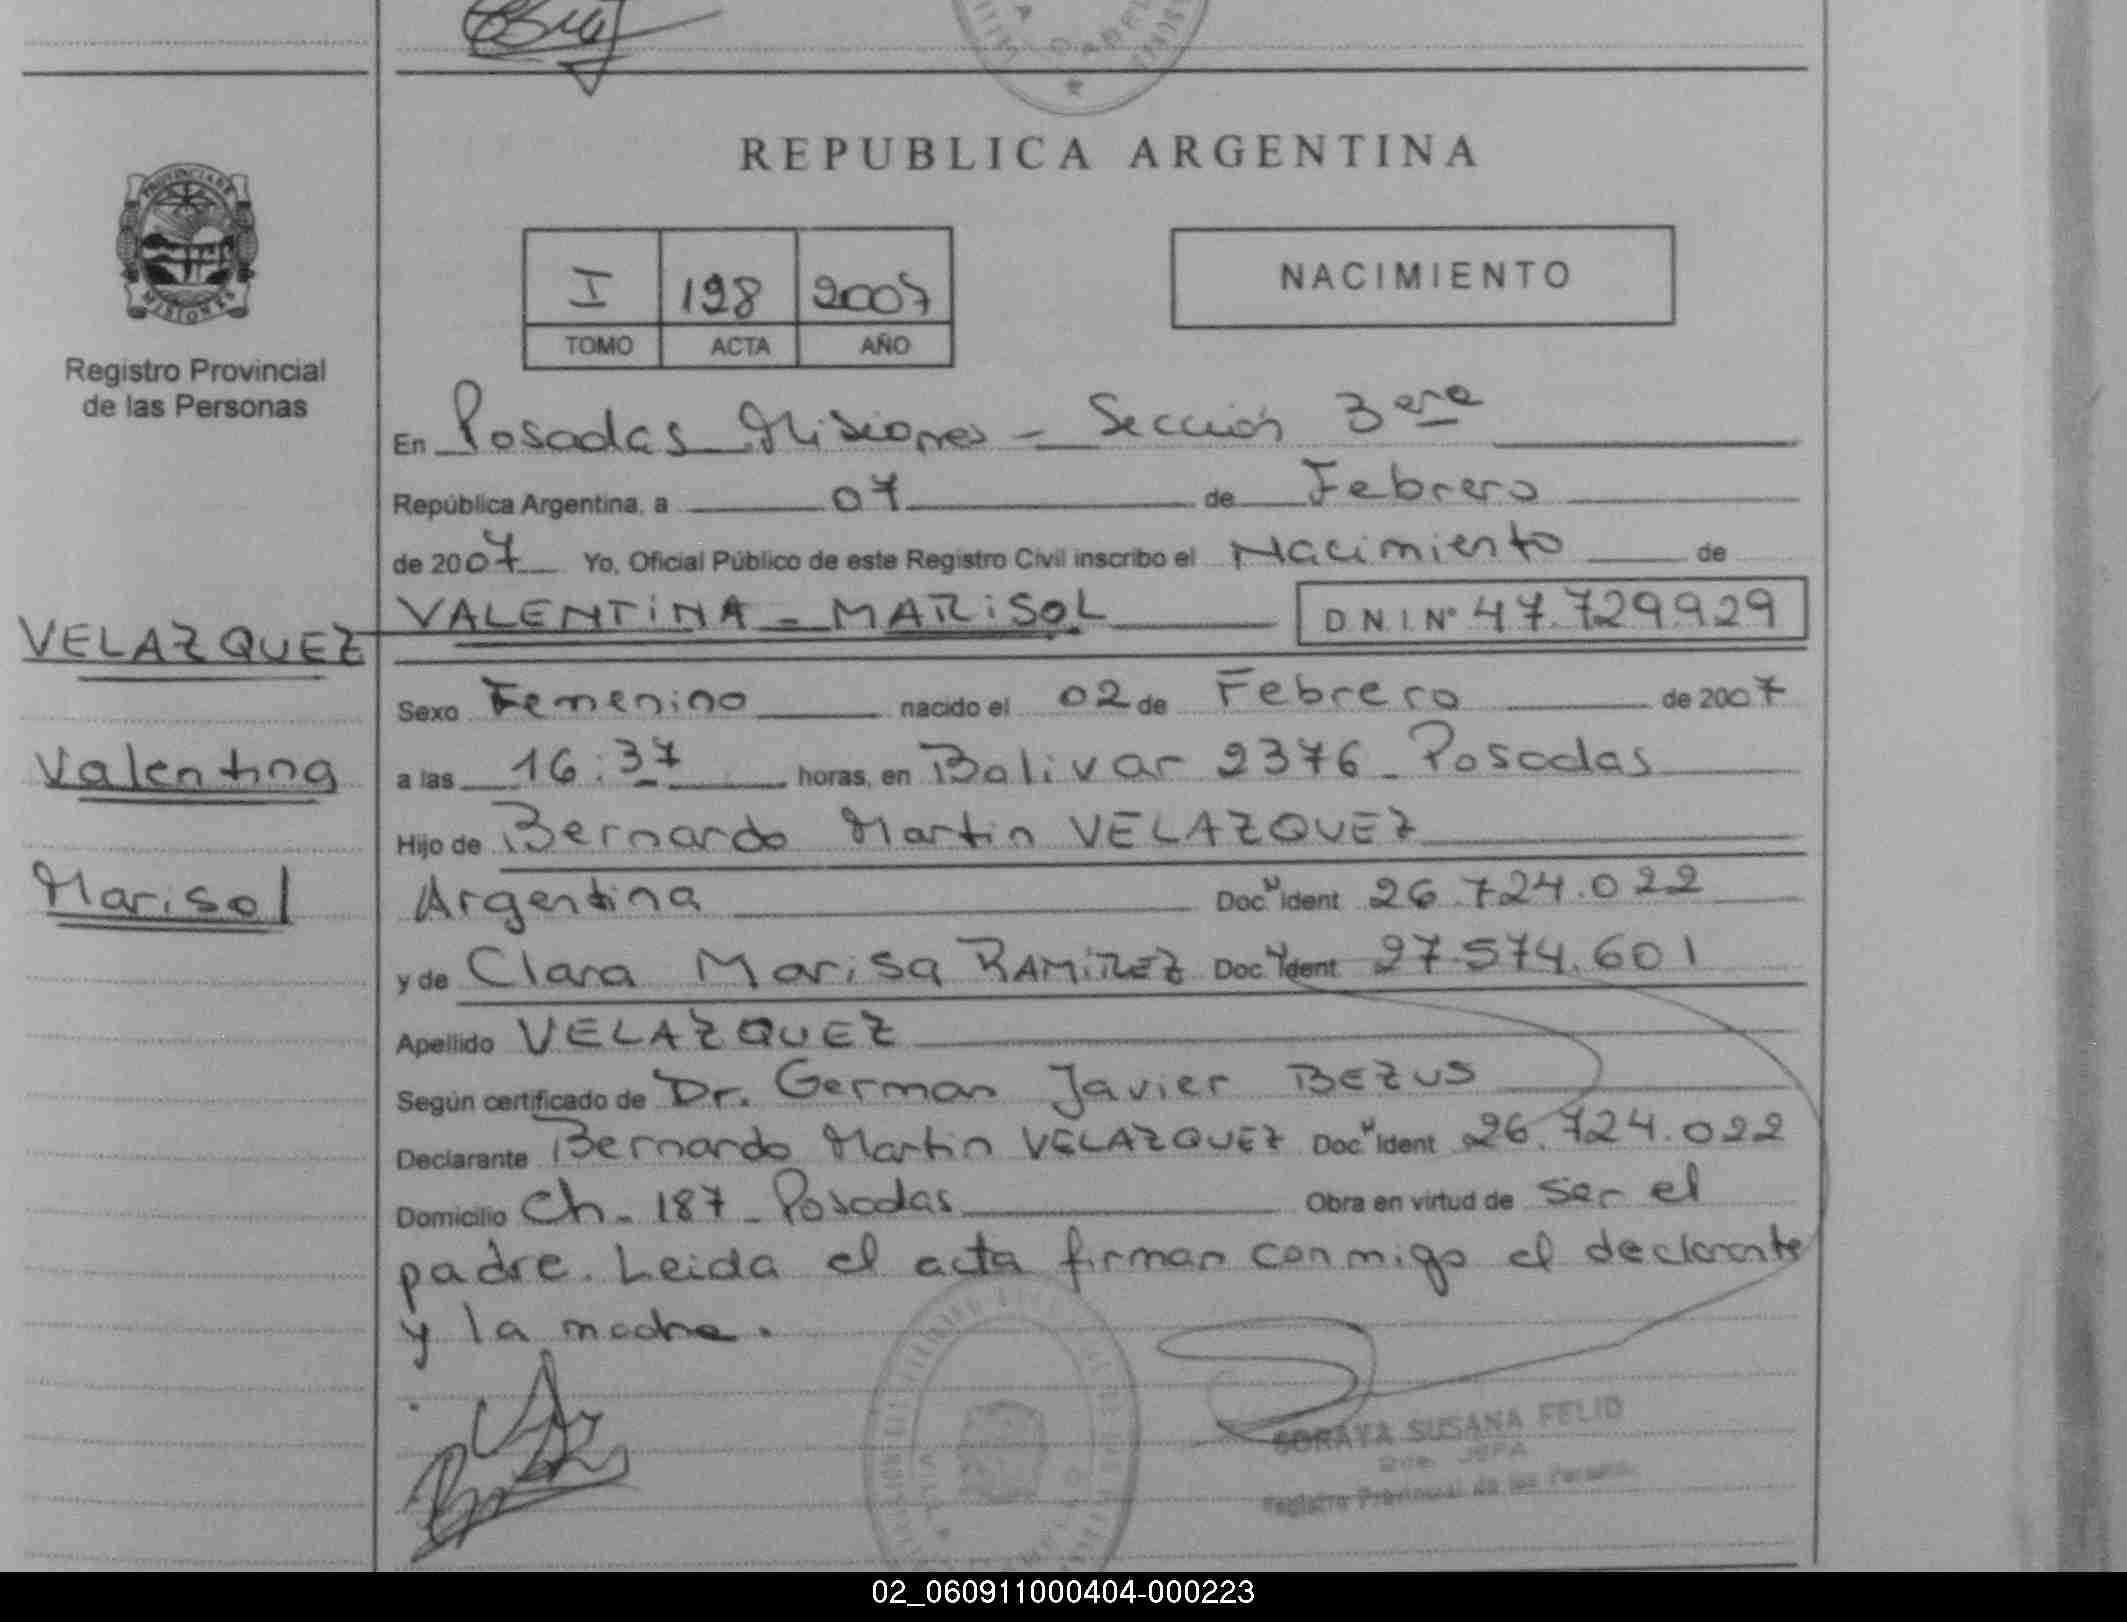 REPUBLICA ARGENTINA
PROVINCIA DE
MISIONES
Registro Provincial
de las Personas
I 198 2007
TOMO ACTA AÑO
NACIMIENTO
En Posadas Misiones - Sección 3era
República Argentina, a 07 de Febrero
de 2007 Yo, Oficial Público de este Registro Civil inscribo el Nacimiento de
VALENTINA - MARISOL D.N.I. Nº 47.729.929
VELAZQUEZ
Valentina
Marisol
Sexo Femenino nacido el 02 de Febrero de 2007
a las 16:37 horas, en Bolivar 2376 - Posadas
Hijo de Bernardo Martin VELAZQUEZ
Argentina Doc. Ident 26.724.022
y de Clara Marisa RAMIREZ Doc. Ident 27.574.601
Apellido VELAZQUEZ
Según certificado de Dr. German Javier BEZUS
Declarante Bernardo Martin VELAZQUEZ Doc. Ident 26.724.022
Domicilio Ch - 187 - Posadas Obra en virtud de ser el
padre. Leida el acta firman conmigo el declarante
y la madre.
SORAYA SUSANA FELID
JEFA
Registro Provincial de las
02_060911000404-000223